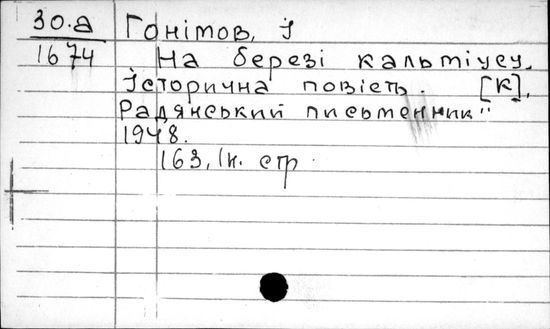 30.а Гонімов, І
1674 На березі кальміусу.
Історична повість. [К],
Радянський письменник"
1948.
163, Ін. стр.